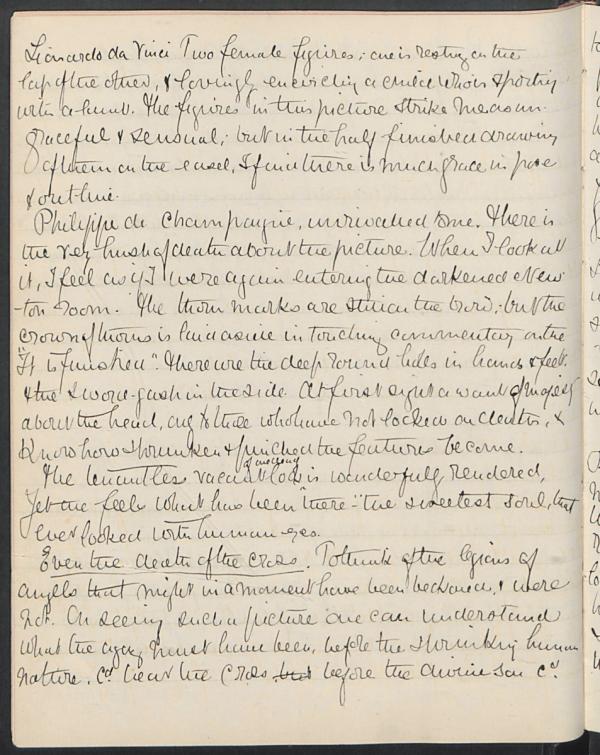 Lionardo da Vinci Two female figures; one is resting on the
lap of the other, & lovingly encircling a child who is sporting
with a lamb. The figures in this picture strike me as un-
graceful & sensual; but in the half-finished drawing
of them on the easel, I find there is much grace in pose
& outline.
Philippe de Champaigne, unrivalled one. There is
the very hush of death about the picture. When I look at
it, I feel as if I were again entering the darkened
room. The thorn marks are still on the brow; but the
crown of thorns is laid aside in touching commentary on the
"It is finished". There are the deep round holes in hands & feet.
& the sword-gash in the side. At first sight a want of majesty
about the head, only to those who have not looked on death, &
know how shrunken & pinched the features become.
The tenantless vacant look is wonderfully rendered,
yet one feels what has been there - "the sweetest soul, that
ever looked with human eyes.
Even the death of the cross. To think of the legions of
angels that might in a moment have been beckoned, & were
not. On seeing such a picture one can understand
what the agony must have been, before the shrinking human
nature, cd bear the cross before the divine son cd